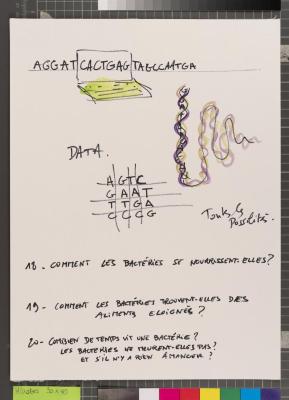 AGGATCACTGAGTAGCCATGA
DATA.
AGTC
GAAT
TTGA
CCCG
Tout
Possible.
18 - COMMENT LES BACTÉRIES SE NOURRISSENT-ELLES?
19 - COMMENT LES BACTÉRIES TROUVENT-ELLES DES
ALIMENTS ELOIGNÉS?
20 - COMBIEN DE TEMPS VIT UNE BACTÉRIE?
LES BACTERIES NE MEURENT-ELLES PAS?
ET S'IL N'Y A RIEN À MANGER?